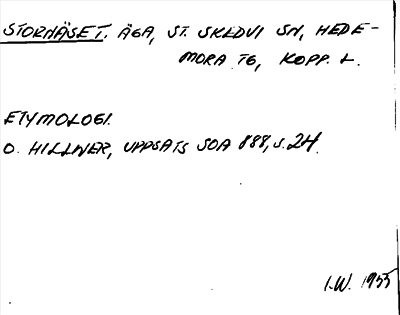 STORNÄSET. ÄGA, ST. SKEDVI SN, HEDE-
MORA TG, KOPP. L.
ETYMOLOGI.
O. HILLNER, UPPSATS SOA 888, S. 24.
I.W. 1955